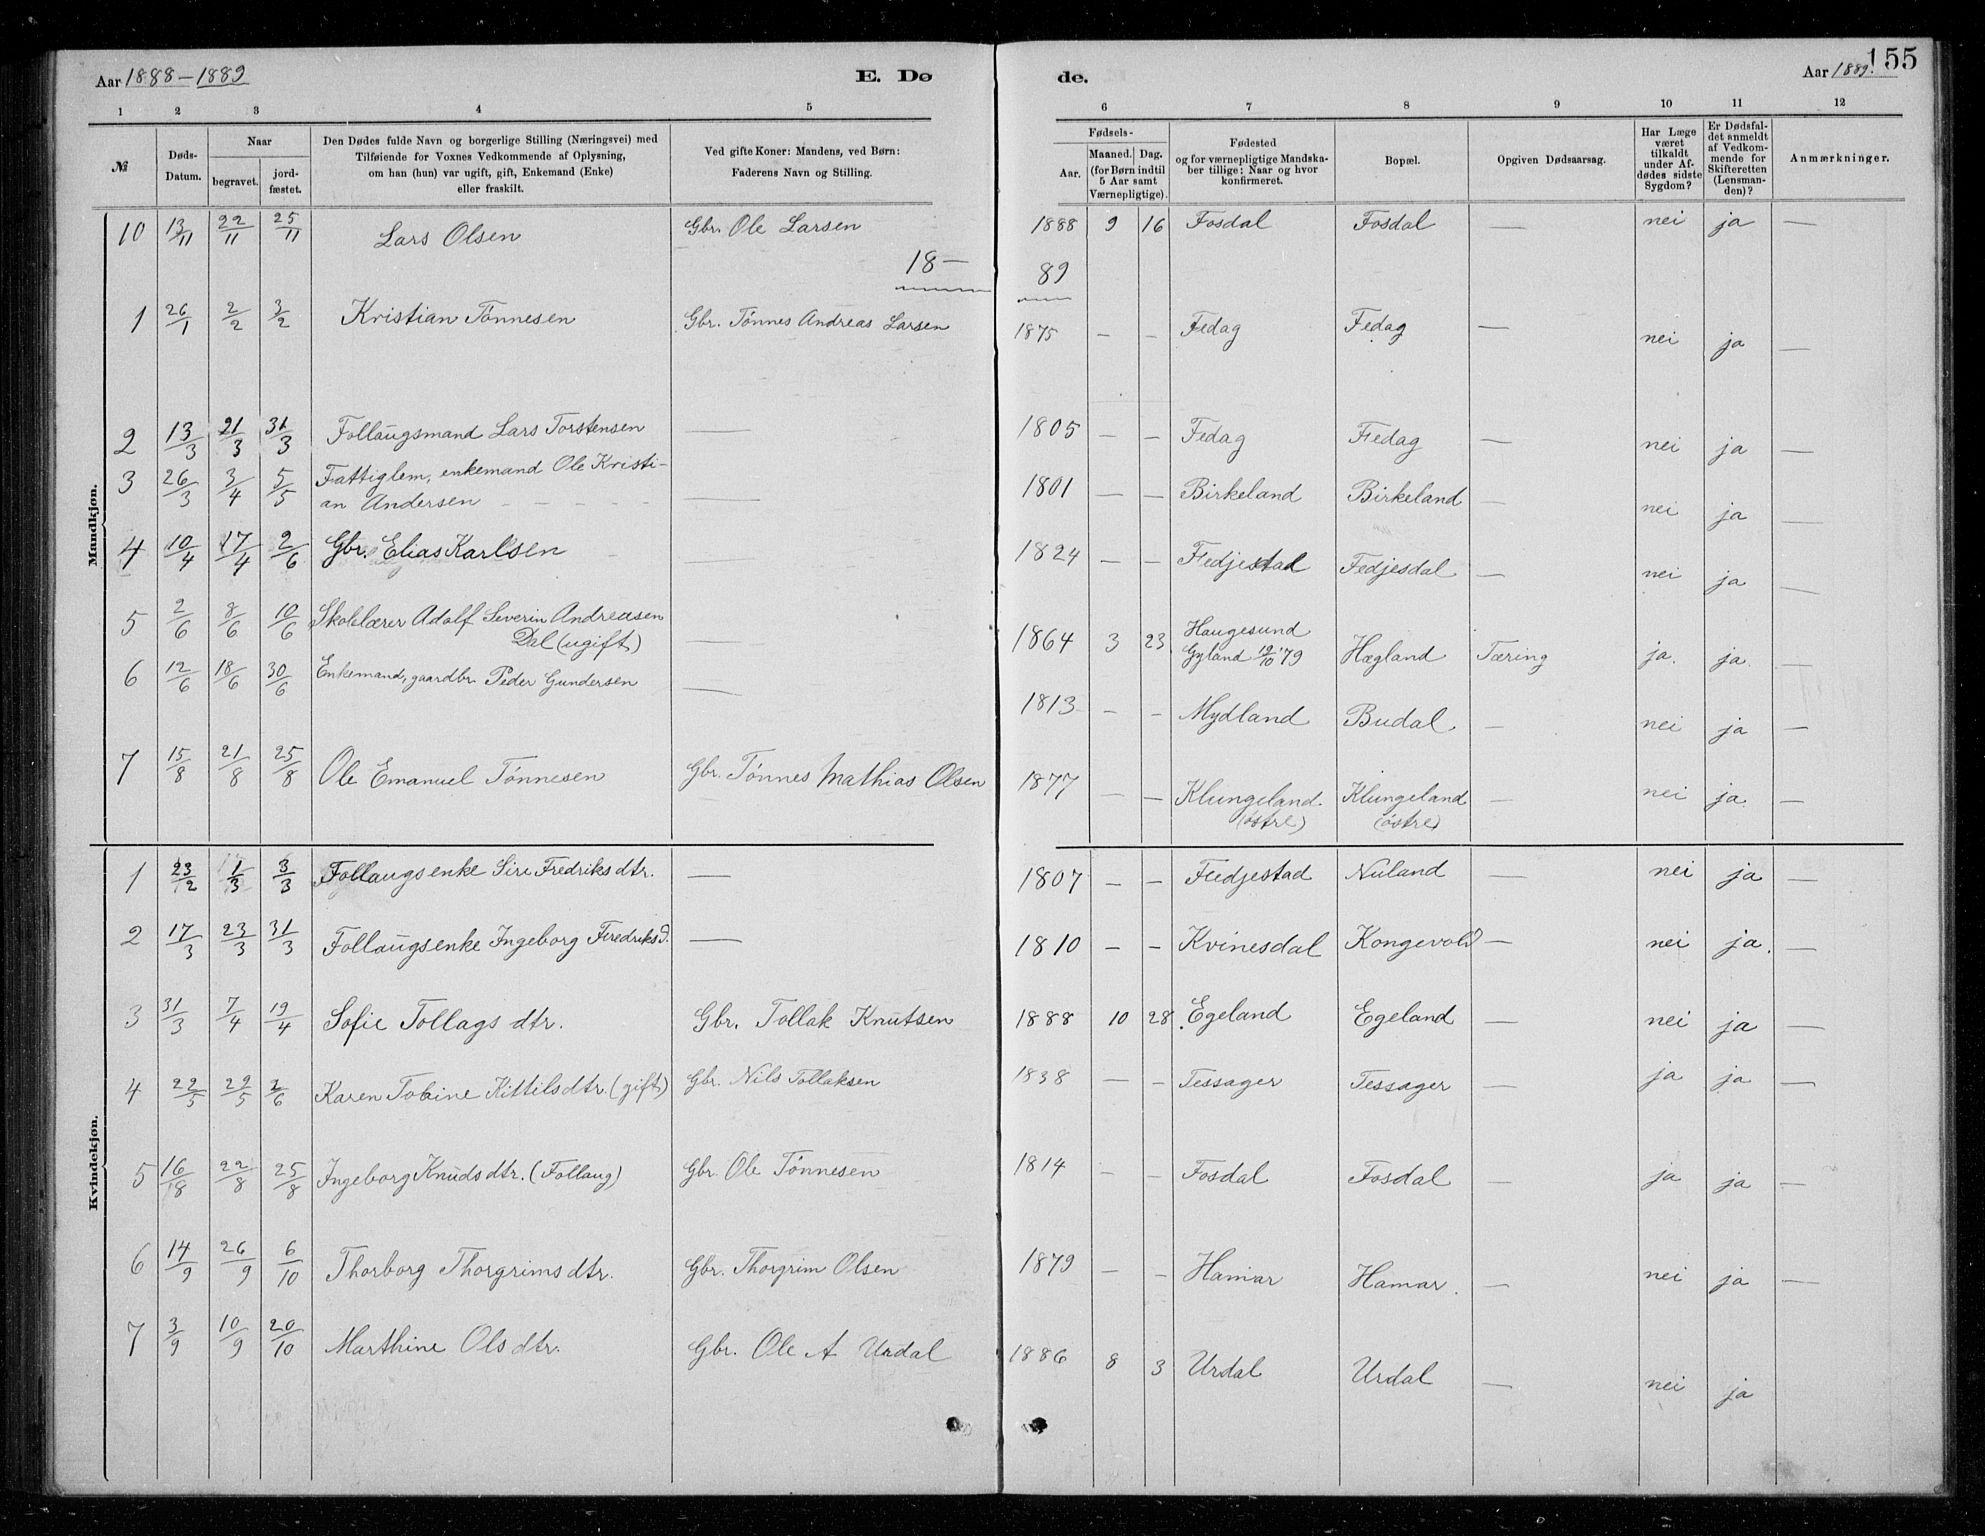 Aar 1888-1889 E. Dø de. Aar 1889. 155
1 2 3 4 5 6 7 8 9 10 11 12
№ Døds-Datum. Naar begravet. jordfæstet. Den Dødes fulde Navn og borgerlige Stilling (Næringsvei) med Tilføiende for Voxnes Vedkommende af Oplysning, om han (hun) var ugift, gift, Enkemand (Enke) eller fraskilt. Ved gifte Koner: Mandens, ved Børn: Faderens Navn og Stilling. Fødsels- Aar. Maaned. Dag. (for Børn indtil 5 Aar samt Værnepligtige). Fødested og for værnepligtige Mandskaber tillige: Naar og hvor konfirmeret. Bopæl. Opgiven Dødsaarsag. Har Læge været tilkaldt under Afdødes sidste Sygdom? Er Dødsfaldet anmeldt af Vedkommende for Skifteretten (Lensmanden)? Anmærkninger.
Mandkjøn.
10 13/11 22/11 25/11 Lars Olsen Gbr. Ole Larsen 1888 9 16 Fosdal Fosdal — nei ja —
18— 89
1 26/1 2/2 3/2 Kristian Tønnesen Gbr. Tønnes Andreas Larsen 1875 — — Fedag Fedag — nei ja —
2 13/3 21/3 31/3 Follaugsmand Lars Torstensen — 1805 — — Fedag Fedag — nei ja —
3 26/3 3/4 5/5 Fattiglem, enkemand Ole Kristi-
an Andersen — 1801 — — Birkeland Birkeland — nei ja —
4 10/4 17/4 2/6 Gbr. Elias Karlsen — 1824 — — Fedjestad Fedjesdal — nei ja —
5 2/6 8/6 10/6 Skolelærer Adolf Severin Andreasen
Dal (ugift) — 1864 3 23 Haugesund
Gyland 19/10 '79 Hægland Tæring ja. ja. —
6 12/6 18/6 30/6 Enkemand, gaardbr. Peder Gundersen — 1813 — — Mydland Budal — nei ja —
7 15/8 21/8 25/8 Ole Emanuel Tønnesen Gbr. Tønnes Mathias Olsen 1877 — — Klungeland (østre) Klungeland (østre) — nei ja. —
Kvindekjøn.
1 23/2 1/3 3/3 Follaugsenke Siri Fredriksdtr. — 1807 — — Fedjestad Nuland — nei ja —
2 17/3 23/3 31/3 Follaugsenke Ingeborg Fredriksd. — 1810 — — Kvinesdal Kongevold — nei ja. —
3 31/3 7/4 19/4 Sofie Tollagsdtr. Gbr. Tollak Knutsen 1888 10 28 Egeland Egeland — nei ja —
4 22/5 29/5 2/6 Karen Tobine Kittilsdtr. (gift) Gbr. Nils Tollaksen 1838 — — Tessager Tessager — ja ja —
5 16/8 22/8 25/8 Ingeborg Knudsdtr. (Follaug) Gbr. Ole Tønnesen 1814 — — Fosdal Fosdal — ja ja —
6 14/9 26/9 6/10 Thorborg Thorgrimsdtr. Gbr. Thorgrim Olsen 1879 — — Hamar Hamar. — nei ja —
7 3/9 10/9 20/10 Marthine Olsdtr. Gbr. Ole A Urdal 1886 8 3 Urdal Urdal — nei ja